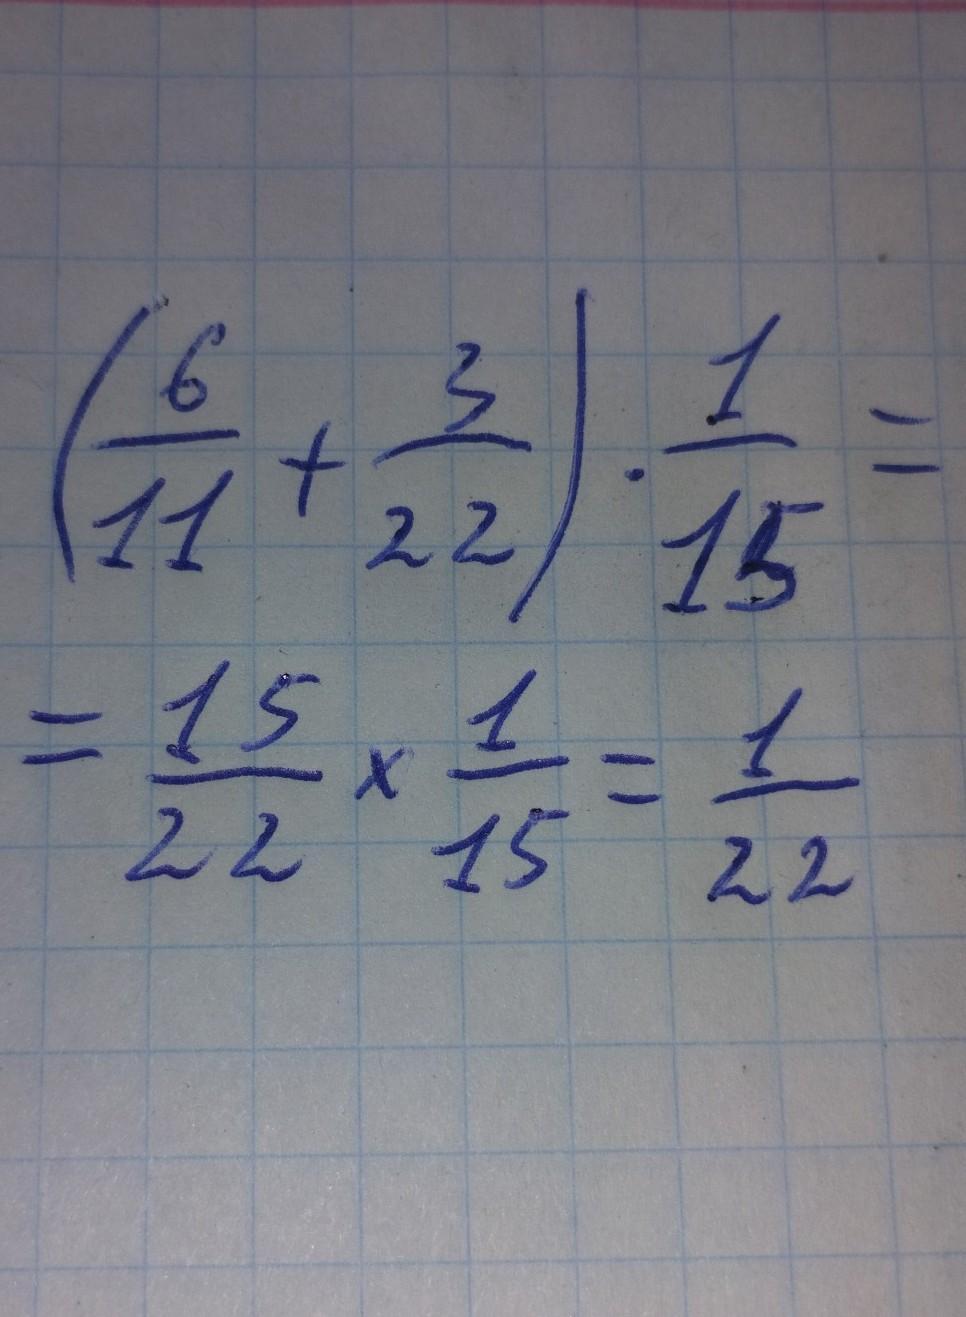 (6/11 + 3/22) · 1/15 =
= 15/22 × 1/15 = 1/22